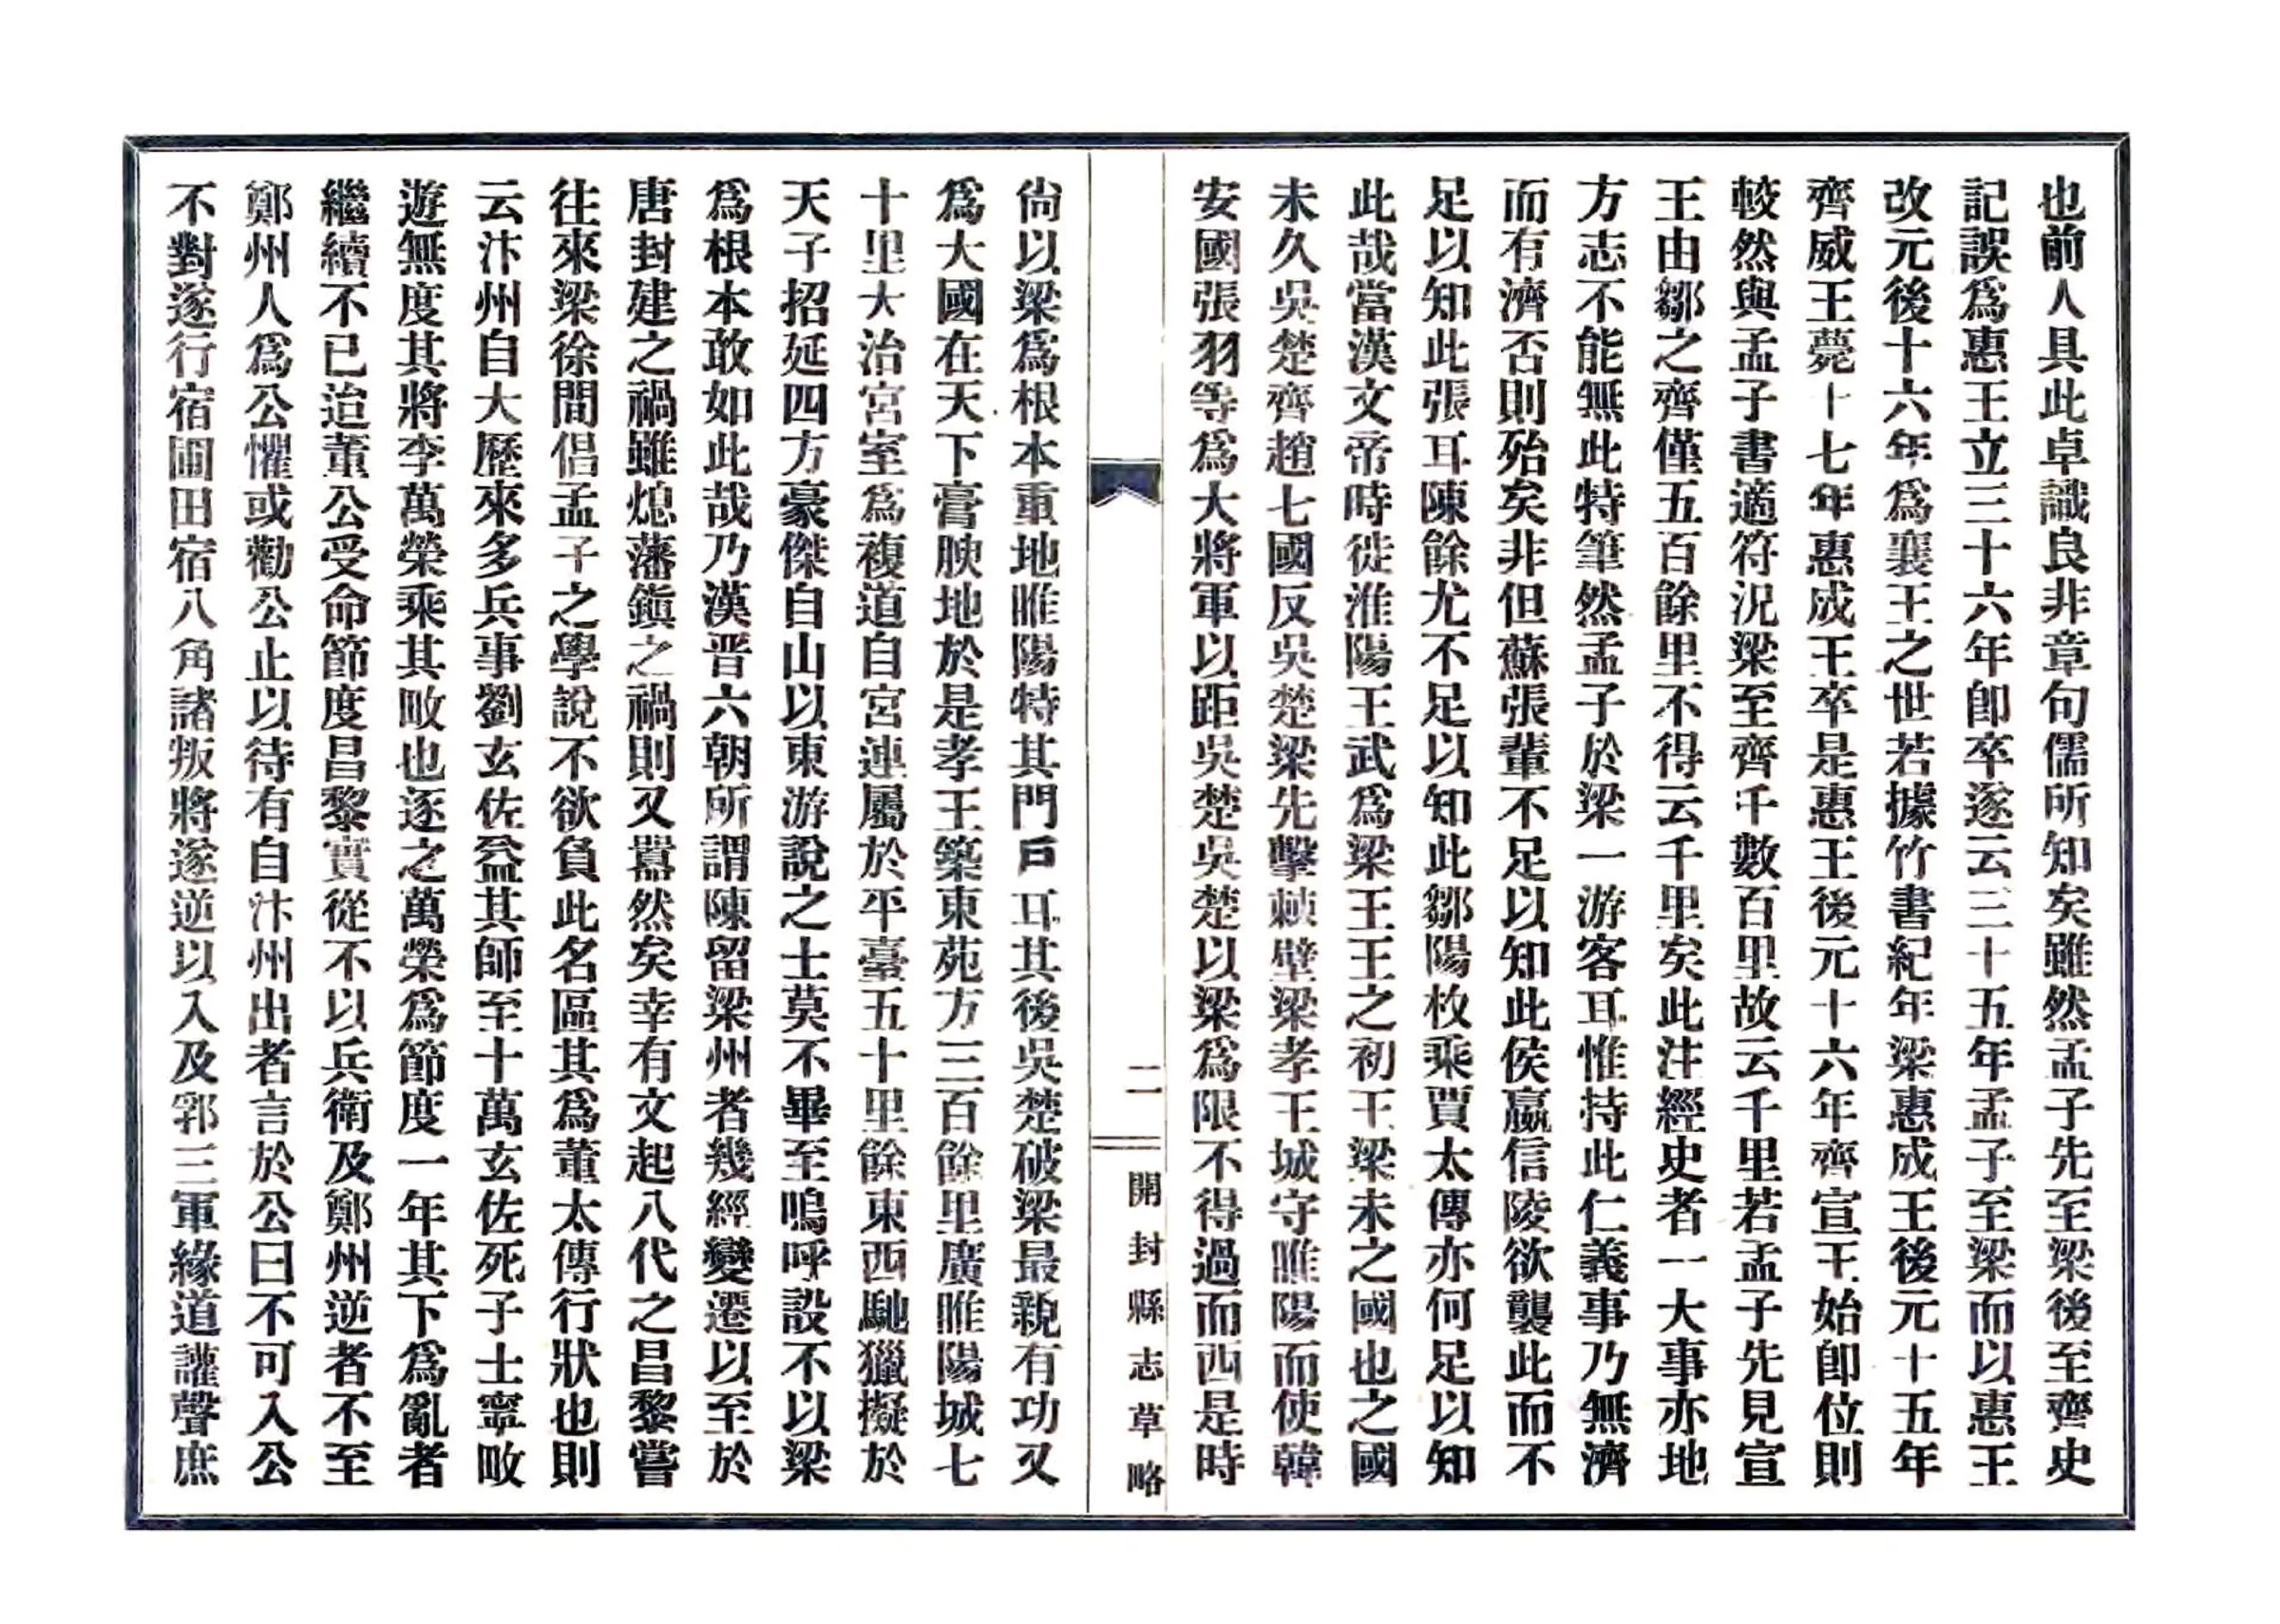 也前人具此卓識良非章句儒所知矣雖然孟子先至梁後至齊史
記誤爲惠王立三十六年卽卒遂云三十五年孟子至梁而以惠王
改元後十六年爲襄王之世若據竹書紀年梁惠成王後元十五年
齊威王薨十七年惠成王卒是惠王後元十六年齊宣王始卽位則
較然與孟子書適符況梁至齊千數百里故云千里若孟子先見宣
王由鄒之齊僅五百餘里不得云千里矣此注經史者一大事亦地
方志不能無此特筆然孟子於梁一游客耳惟持此仁義事乃無濟
而有濟否則殆矣非但蘇張輩不足以知此侯嬴信陵欲襲此而不
足以知此張耳陳餘尤不足以知此鄒陽枚乘賈太傅亦何足以知
此哉當漢文帝時徙淮陽王武爲梁王王之初王梁未之國也之國
未久吳楚齊趙七國反吳楚梁先擊棘壁梁孝王城守睢陽而使韓
安國張羽等爲大將軍以距吳楚吳楚以梁爲限不得過而西是時
二
開封縣志草略
尙以梁爲根本重地睢陽特其門戶耳其後吳楚破梁最親有功又
爲大國在天下膏腴地於是孝王築東苑方三百餘里廣睢陽城七
十里大治宮室爲複道自宮連屬於平臺五十里餘東西馳獵擬於
天子招延四方豪傑自山以東游說之士莫不畢至嗚呼設不以梁
爲根本敢如此哉乃漢晋六朝所謂陳留梁州者幾經變遷以至於
唐封建之禍雖熄藩鎭之禍則又囂然矣幸有文起八代之昌黎嘗
往來梁徐間倡孟子之學說不欲負此名區其爲董太傅行狀也則
云汴州自大歷來多兵事劉玄佐益其師至十萬玄佐死子士寧畋
遊無度其將李萬榮乘其畋也逐之萬榮爲節度一年其下爲亂者
繼續不已迨董公受命節度昌黎實從不以兵衛及鄭州逆者不至
鄭州人爲公懼或勸公止以待有自汴州出者言於公曰不可入公
不對遂行宿圃田宿八角諸叛將遂逆以入及郛三軍緣道讙聲庶